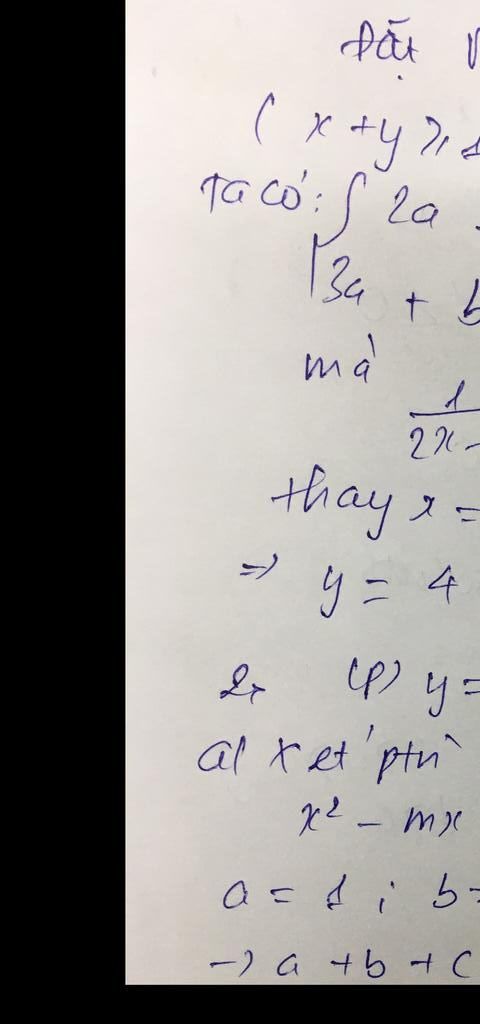 Đặt
( x + y ≥ 1
Ta có: { 2a
3a + b
mà
1
2x -
thay x =
=> y = 4
2, (P) y =
a/ Xét ptr
x² - mx
a = 1 ; b =
-> a + b + c